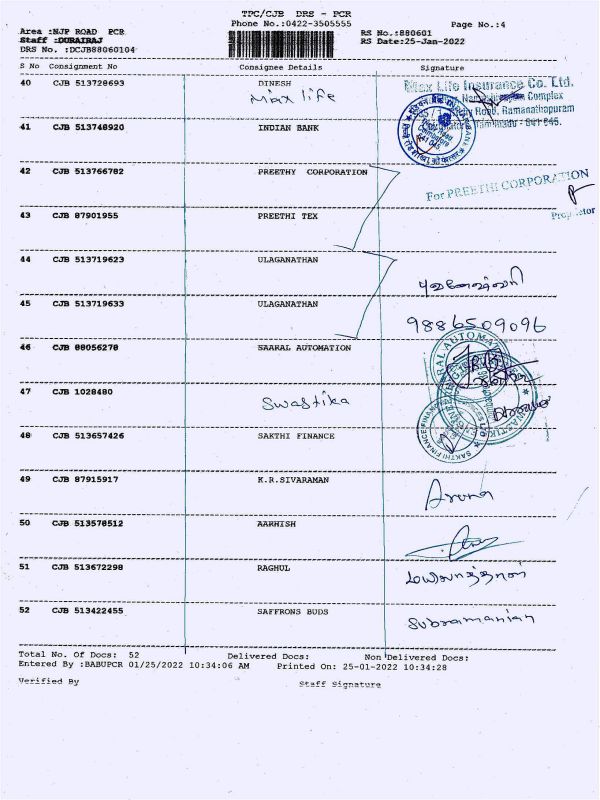 TPC/CJB DRS - PCR
Phone No.:0422-3505555 Page No.:4
Area :NJP ROAD PCR RS No.:880601
Staff :DURAIRAJ RS Date:25-Jan-2022
DRS No. :DCJB88060104
S No Consignment No Consignee Details Signature
40 CJB 513728693 DINESH Max Life Insurance Co. Ltd.
Max life Complex
Road, Ramanathapuram
41 CJB 513748920 INDIAN BANK
42 CJB 513766782 PREETHY CORPORATION
For PREETHI CORPORATION
43 CJB 87901955 PREETHI TEX
44 CJB 513719623 ULAGANATHAN
புவனேஸ்வரி
45 CJB 513719633 ULAGANATHAN
9886509096
46 CJB 88056278 SAARAL AUTOMATION
47 CJB 1028480
Swastika
48 CJB 513657426 SAKTHI FINANCE
49 CJB 87915917 K.R.SIVARAMAN
Aruna
50 CJB 513578512 AARHISH
51 CJB 513672298 RAGHUL
52 CJB 513422455 SAFFRONS BUDS
Subramanian
Total No. Of Docs: 52 Delivered Docs: Non Delivered Docs:
Entered By :BABUPCR 01/25/2022 10:34:06 AM Printed On: 25-01-2022 10:34:28
Verified By Staff Signature